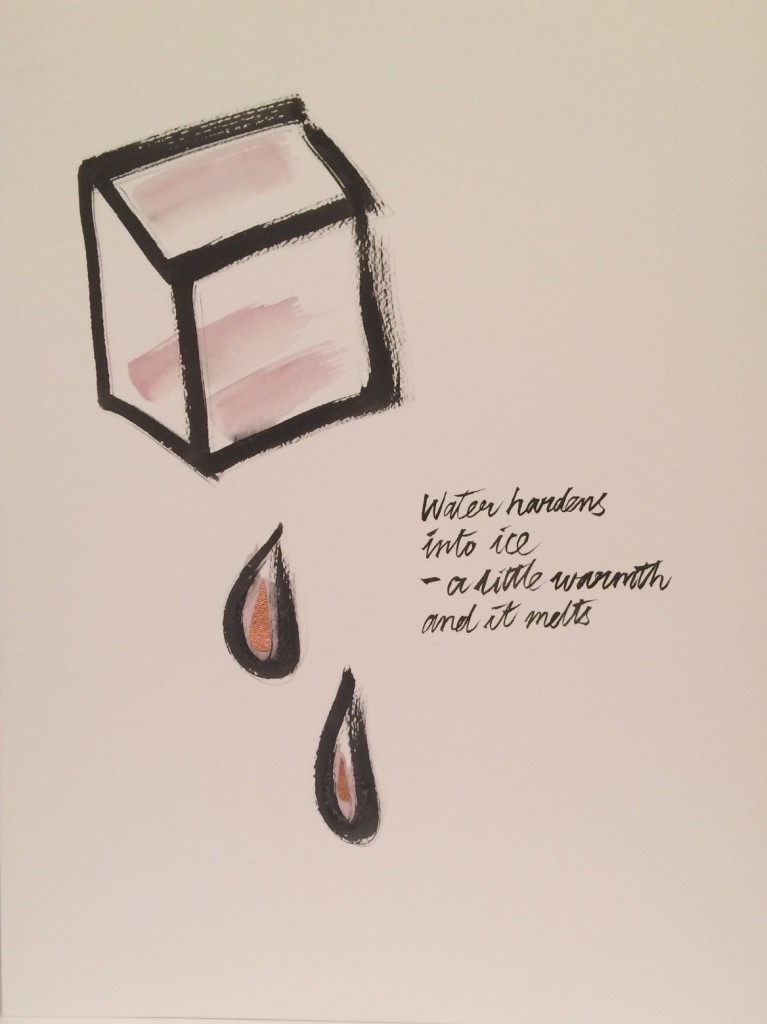 Water hardens
into ice
- a little warmth
and it melts